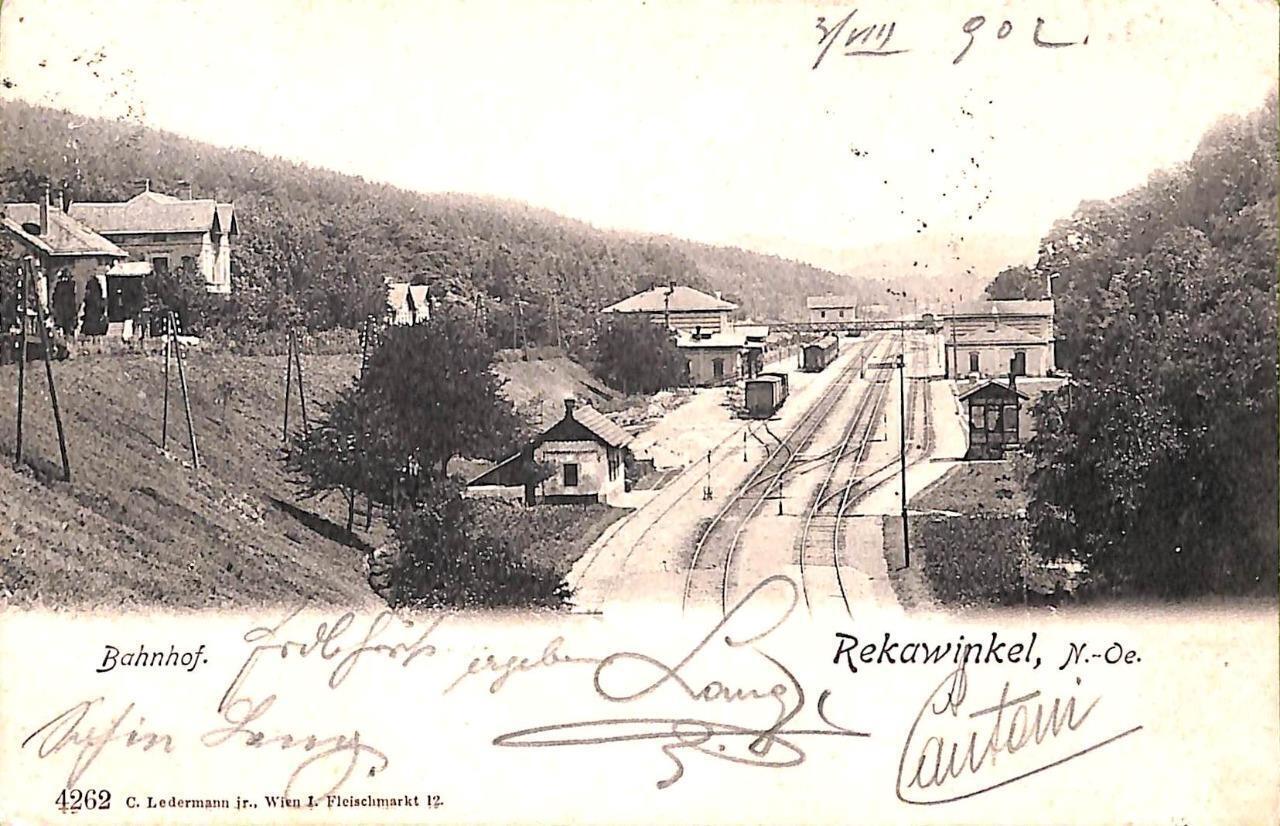 3/VIII 902.
Bahnhof.
Rekawinkel, N.-Oe.
Lang
Lang
Cantoni
4262 C. Ledermann jr., Wien I. Fleischmarkt 12.